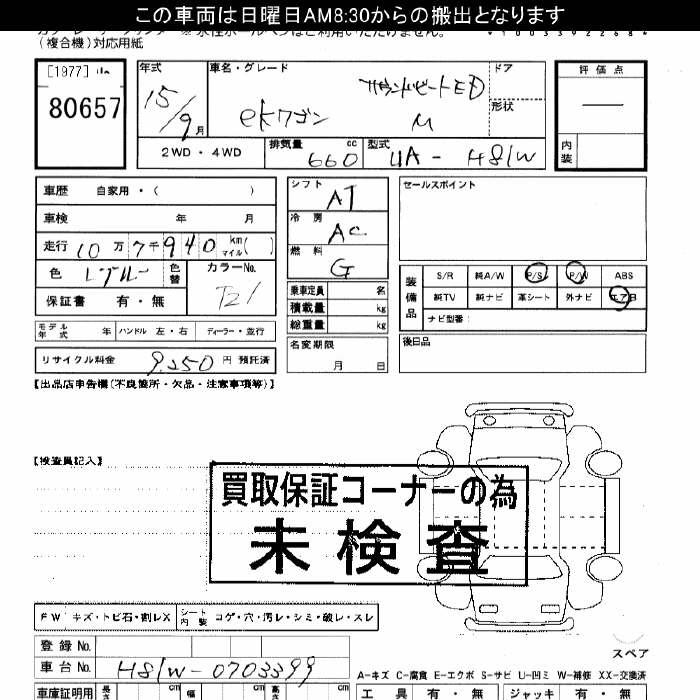 この車両は日曜日AM8:30からの搬出となります
(複合機)対応用紙
[1977]
80657
年式
15/9月
車名・グレード
サウンドビートED
ekワゴン M
ドア
形状
評価点
内装
2WD・4WD
排気量 660 cc
型式 UA-H81W
車歴 自家用・( )
車検 年 月
走行 10万7千940 km マイル( )
色
色替
カラーNo.
T21
保証書 有・無
モデル年式 年 ハンドル 左・右 ディーラー・並行
リサイクル料金 9,250円 預託済
シフト AT
冷房 AC
燃料 G
乗車定員 名
積載量 kg
総重量 kg
名変期限
月 日
セールスポイント
装備品
S/R 純A/W P/S P/W ABS
純TV 純ナビ 革シート 外ナビ エアB
ナビ型番:
後日品
【出品店申告欄(不良箇所・欠品・注意事項等)】
【検査員記入】
買取保証コーナーの為
未検査
FW キズ・トビ石・割レX
シート内装 コゲ・穴・汚レ・シミ・破レ・スレ
登録No.
車台No. H81W-0703399
スペア
A-キズ C-腐食 E-エクボ S-サビ U-凹ミ W-補修 XX-交換済
車庫証明用 長さ cm 幅 cm cm
工具 有・無 ジャッキ 有・無